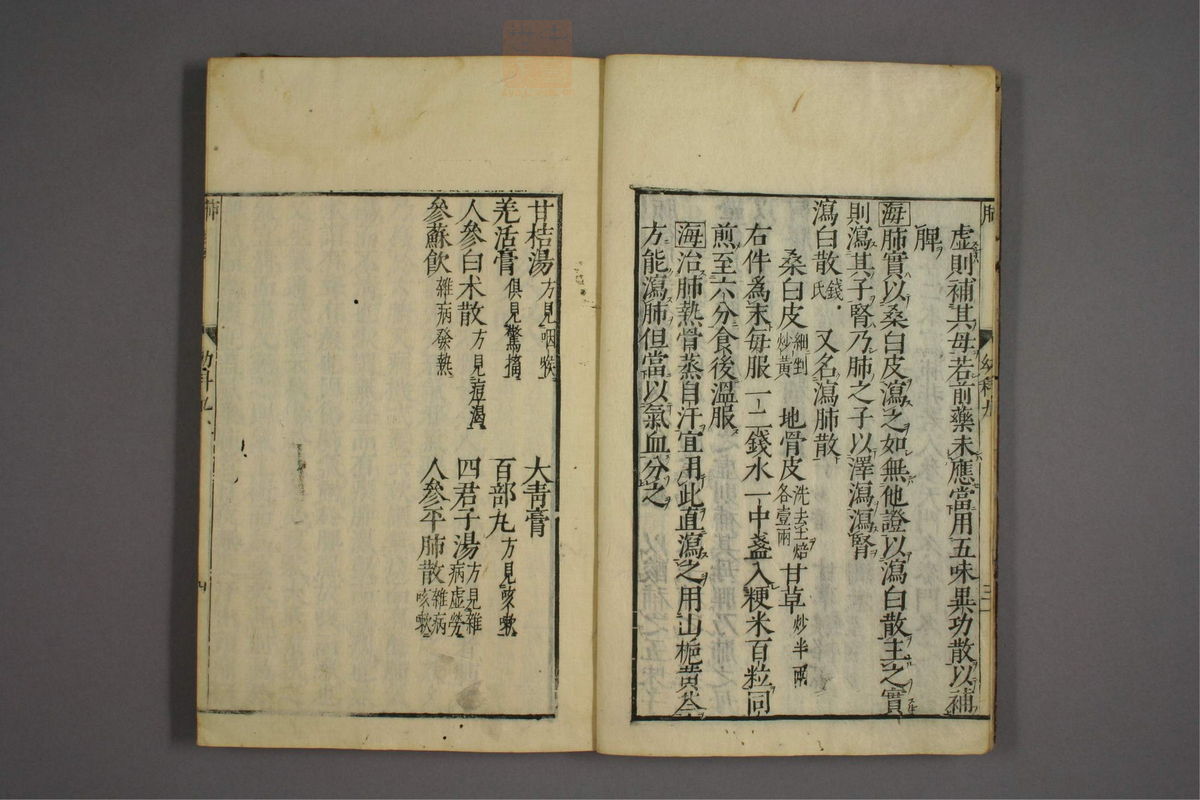 虚則補其母若前藥未應當用五味異功散以補
脾
海肺實以桑白皮瀉之如無他證以瀉白散主之實
則瀉其子腎乃肺之子以澤瀉瀉腎
瀉白散錢氏 又名瀉肺散
桑白皮細剉炒黃 地骨皮洗去土焙各壹兩 甘草炒半兩
右件爲末每服一二錢水一中盞入粳米百粒同
煎至六分食後溫服
海治肺熱骨蒸自汗宜用此直瀉之用山梔黃芩
方能瀉肺但當以氣血分之
甘桔湯方見咽喉 大青膏
羌活膏俱見驚搐 百部丸方見咳嗽
人參白术散方見痘渴 四君子湯方見雜病虛勞
參蘇飲雜病發熱 人參平肺散雜病咳嗽
肺
幼科九
四